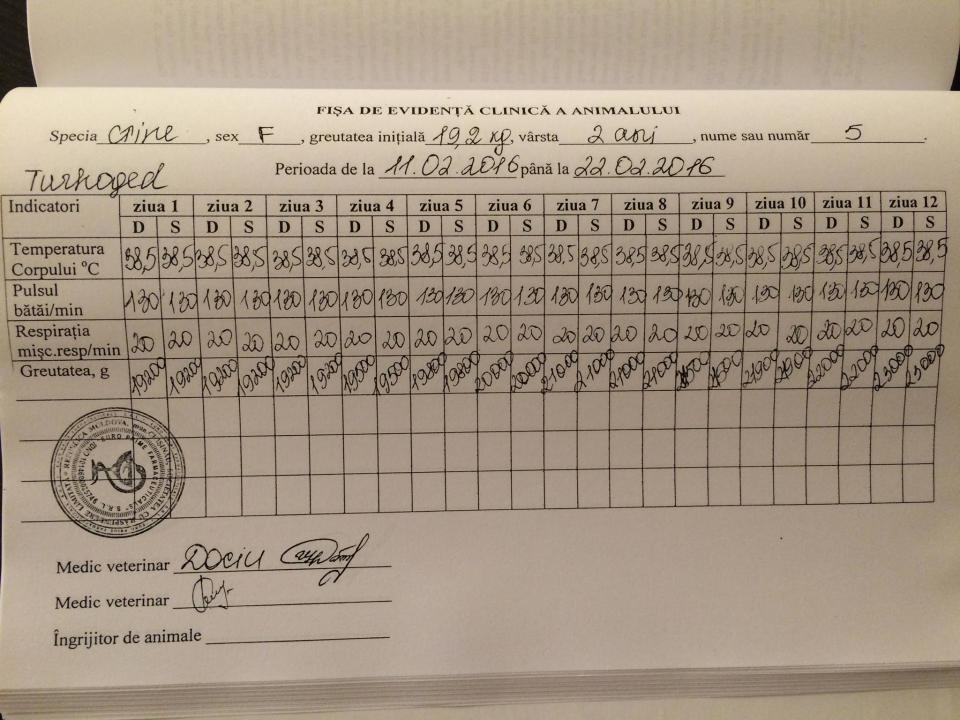 FIȘA DE EVIDENȚĂ CLINICĂ A ANIMALULUI
Specia câine, sex F, greutatea inițială 19,2 kg, vârsta 2 ani, nume sau număr 5.
Perioada de la 11.02.2016 până la 22.02.2016
Turhoged
Indicatori ziua 1 ziua 2 ziua 3 ziua 4 ziua 5 ziua 6 ziua 7 ziua 8 ziua 9 ziua 10 ziua 11 ziua 12
D S D S D S D S D S D S D S D S D S D S D S D S
Temperatura Corpului °C 38,5 38,5 38,5 38,5 38,5 38,5 38,5 38,5 38,5 38,5 38,5 38,5 38,5 38,5 38,5 38,5 38,5 38,5 38,5 38,5 38,5 38,5 38,5 38,5
Pulsul bătăi/min 130 130 130 130 130 130 130 130 130 130 130 130 130 130 130 130 130 130 130 130 130 130 130 130
Respirația mișc.resp/min 20 20 20 20 20 20 20 20 20 20 20 20 20 20 20 20 20 20 20 20 20 20 20 20
Greutatea, g 19200 19200 19200 19200 19200 19200 19500 19500 19800 19800 20000 20000 21000 21000 21000 21000 21900 22000 22000 23000 23000
REPUBLICA MOLDOVA, mun. CHIȘINĂU
SOCIETATEA CU RĂSPUNDERE LIMITATĂ
"EURO PRIME FARMACEUTICALS" S.R.L.
Medic veterinar Dociu
Medic veterinar
Îngrijitor de animale